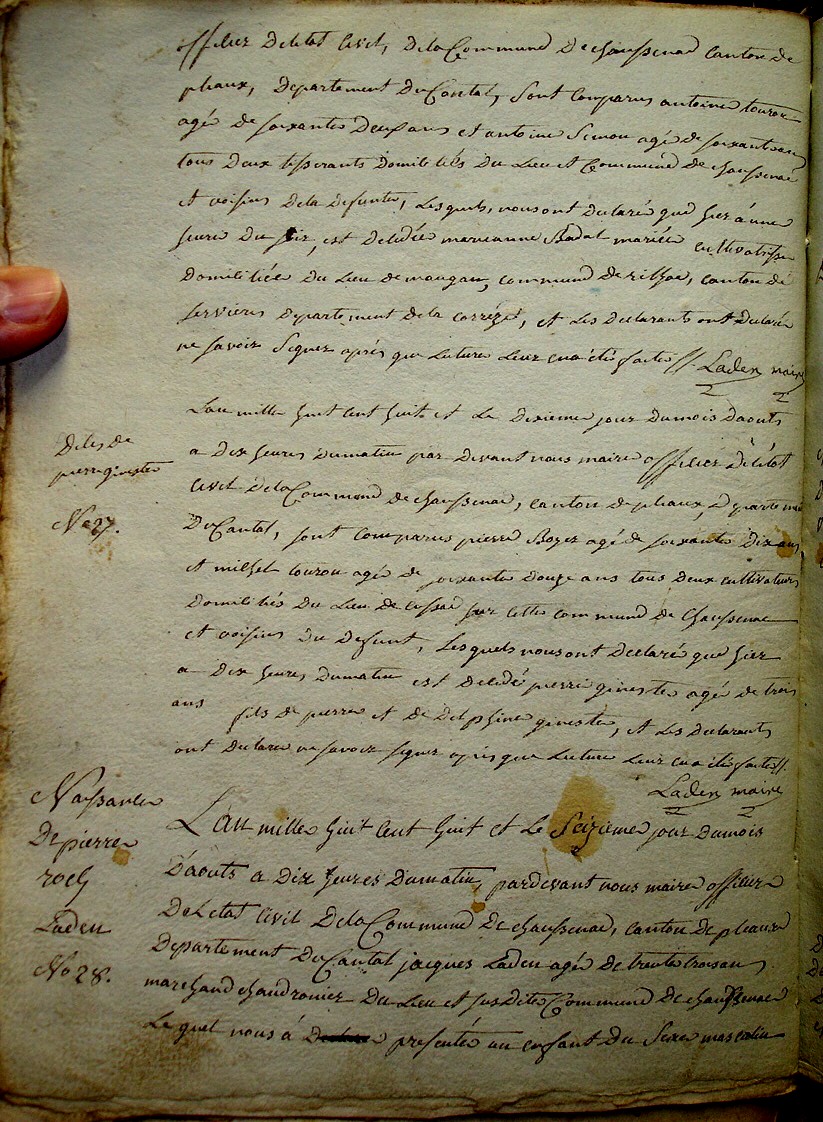 officier deletat civil, delaCommune dechaussenac canton de
pleaux, departement duCantal, sont comparus antoine touron
agé de soixante deux ans et antoine
tous deux tisserants domiciliés du lieu et Commune de chaussenac
et voisins dela defunte, lesquels, nous ont declaré que hier á une
heure du soir, est decedée marianne Badal mariée cultivatrice
domiciliée du lieu de commune de rilhac, canton de
servieres departement dela corréze, et les declarants ont declaré
ne savoir signer aprés que lecture leur en a été faite //. Laden maire
Lan mille huit cent huit et le dixieme jour dumois daouts
Déces de
pierre gineste
No 27.
a dix heures dumatin par devant nous maire officier deletat
civil delaCommune de chaussenac, canton de pleaux, departement
duCantal, sont comparus pierre Boyer agé de soixante dix ans
et michel touron agé de soixante douze ans tous deux cultivateurs
domiciliés du lieu de cussac sur cette commune de chaussenac
et voisins du defunt, lesquels nous ont declaré que hier
a dix heures dumatin est decedé pierre gineste agé de trois
ans fils de pierre et de delphine gineste, et les declarants
ont declare ne savoir signer aprés que lecture leur en a été faite //.
Laden maire
Naissance
De pierre
roch
Laden
No 28.
Lan mille huit cent huit et le Seizieme jour dumois
d'aouts a dix heures dumatin, pardevant nous maire officier
deletat civil delaCommune de chaussenac, canton de pleaux
departement duCantal jacques Laden agée de trente trois ans
marchand chaudronier du lieu et susdite Commune de chaussenac
Lequel nous á presenté un enfant du Sexe masculin